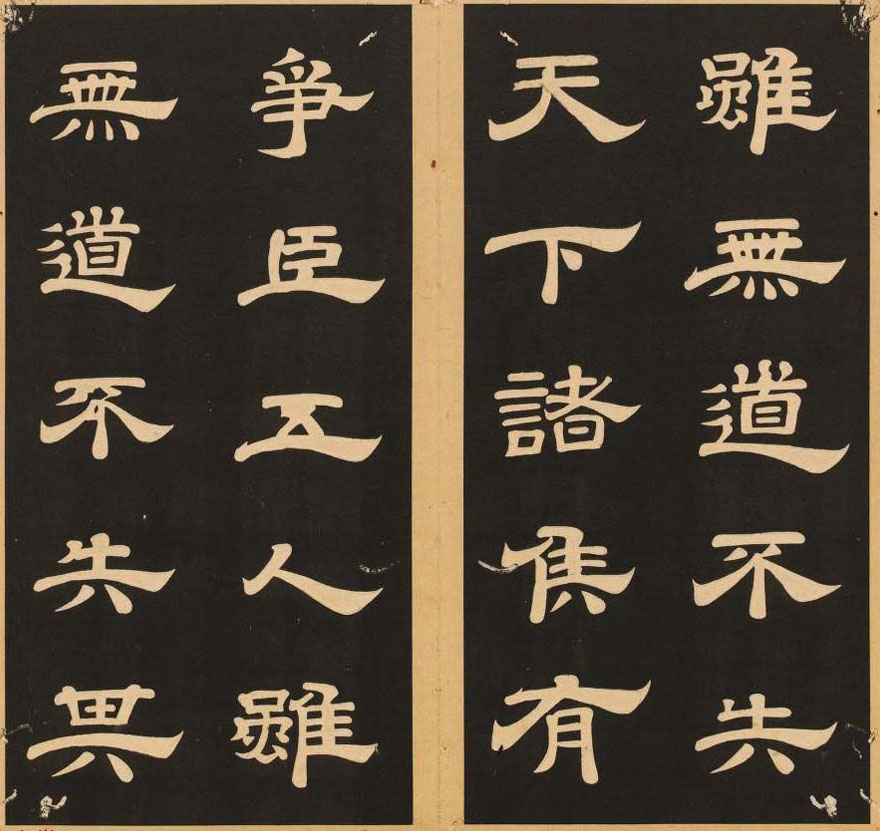 雖無道不失
天下諸侯有
爭臣五人雖
無道不失其